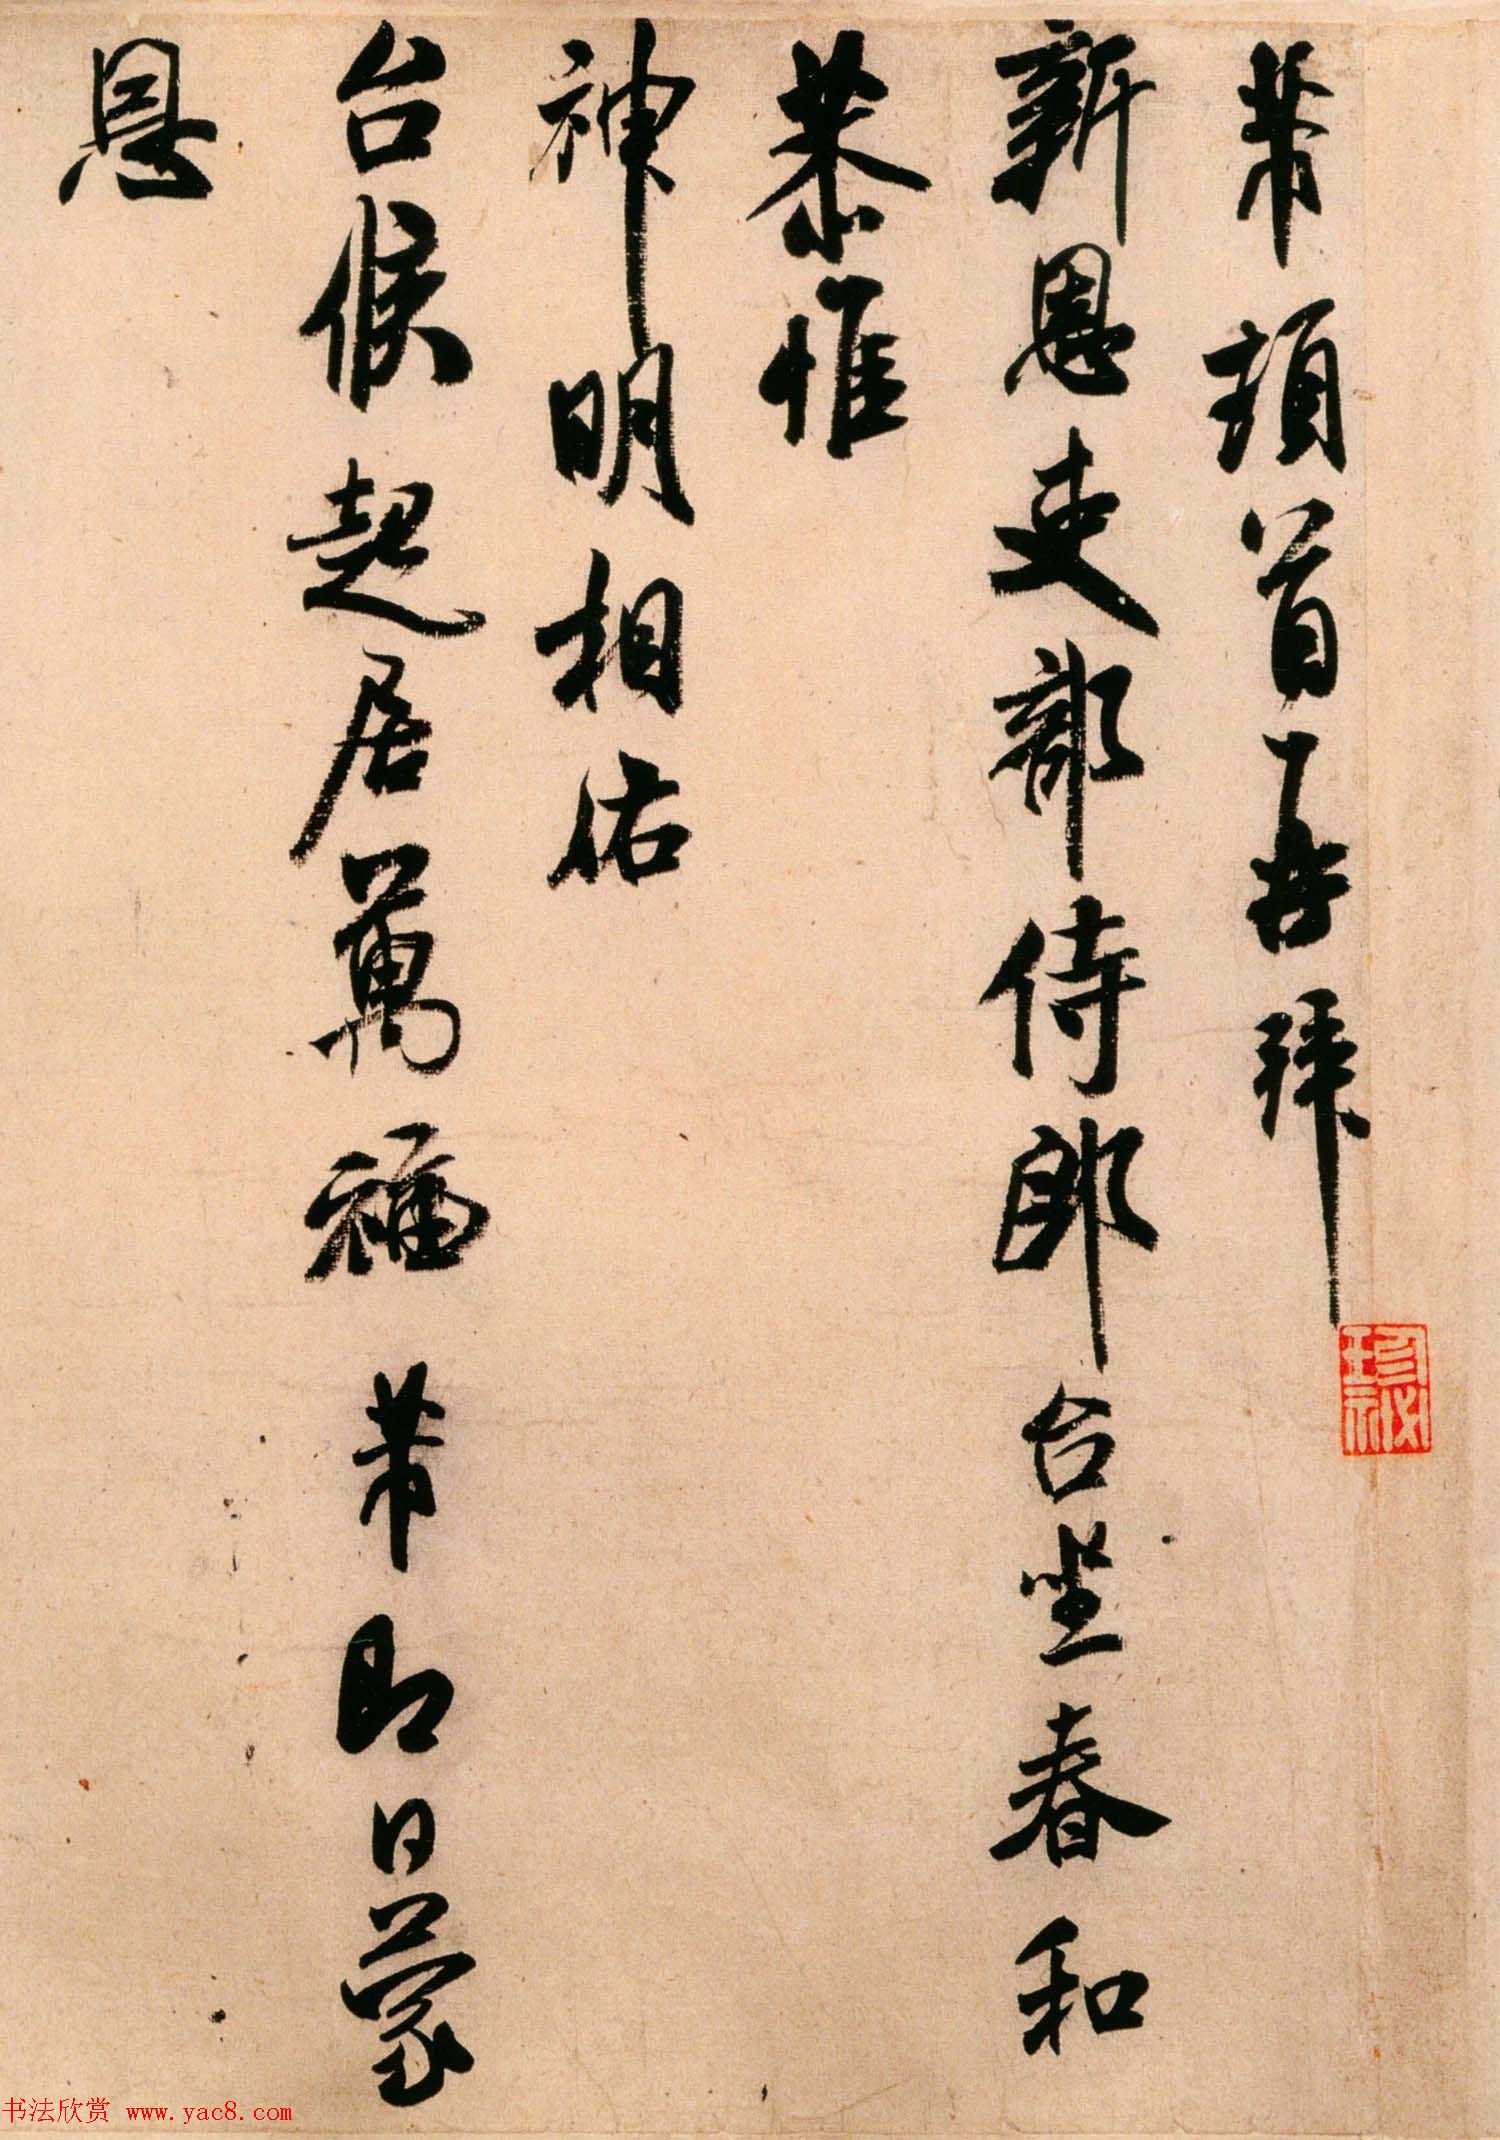 芾頓首再拜
新恩吏部侍郎台坐春和
恭惟
神明相佑
台候起居萬福芾即日蒙
恩
珍祕
书法欣赏 www.yac8.com